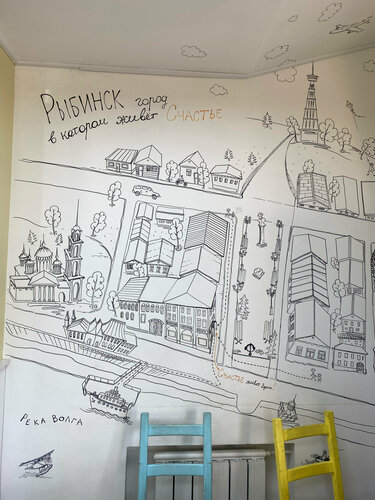 Рыбинск город
в котором живёт Счастье
Счастье живёт здесь!
Река Волга